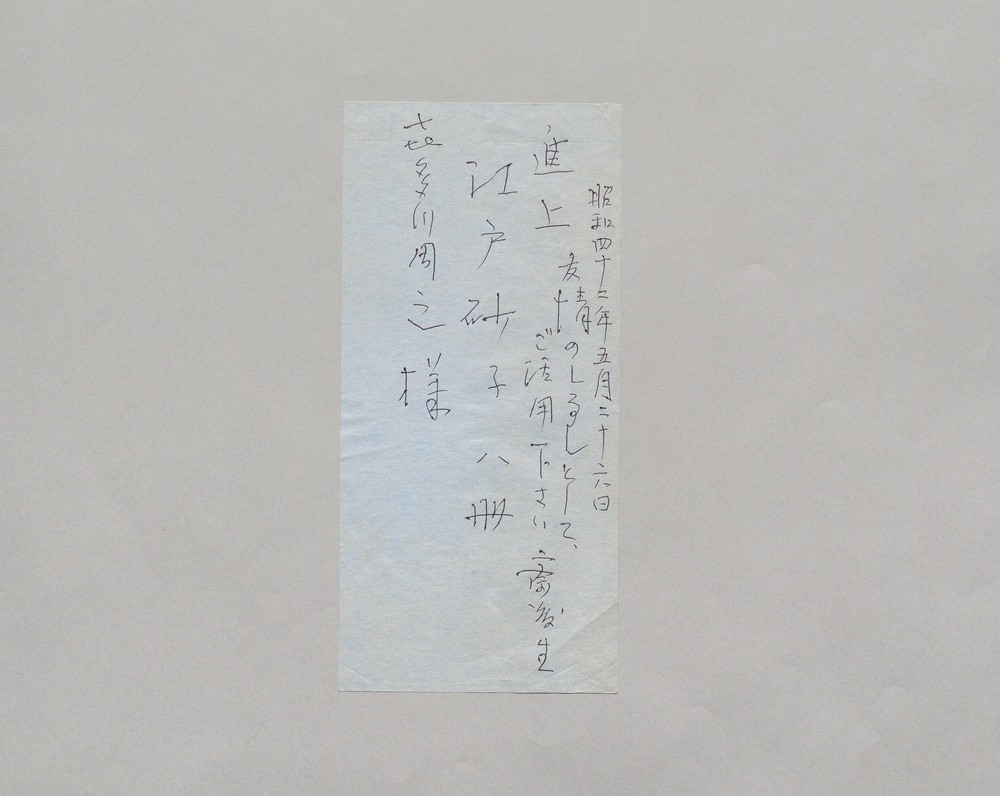 昭和四十二年五月二十六日
進上
友情のしるしとして、
ご活用下さい
生
江戸砂子 八册
喜多川周之様